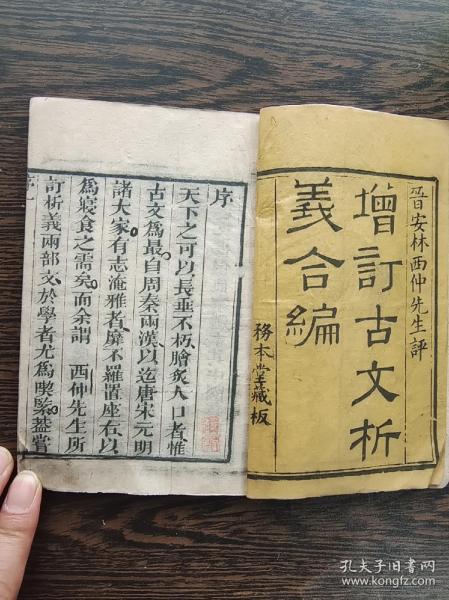 晉安林西仲先生評
增訂古文析
義合編
務本堂藏板
序
天下之可以長垂不朽膾炙人口者惟
古文為最自周秦兩漢以迄唐宋元明
諸大家有志淹雅者靡不羅置座右以
為寢食之需矣而余謂 西仲先生所
訂析義兩部文於學者尤為喫緊葢嘗
序一
孔夫子旧书网
www.kongfz.com